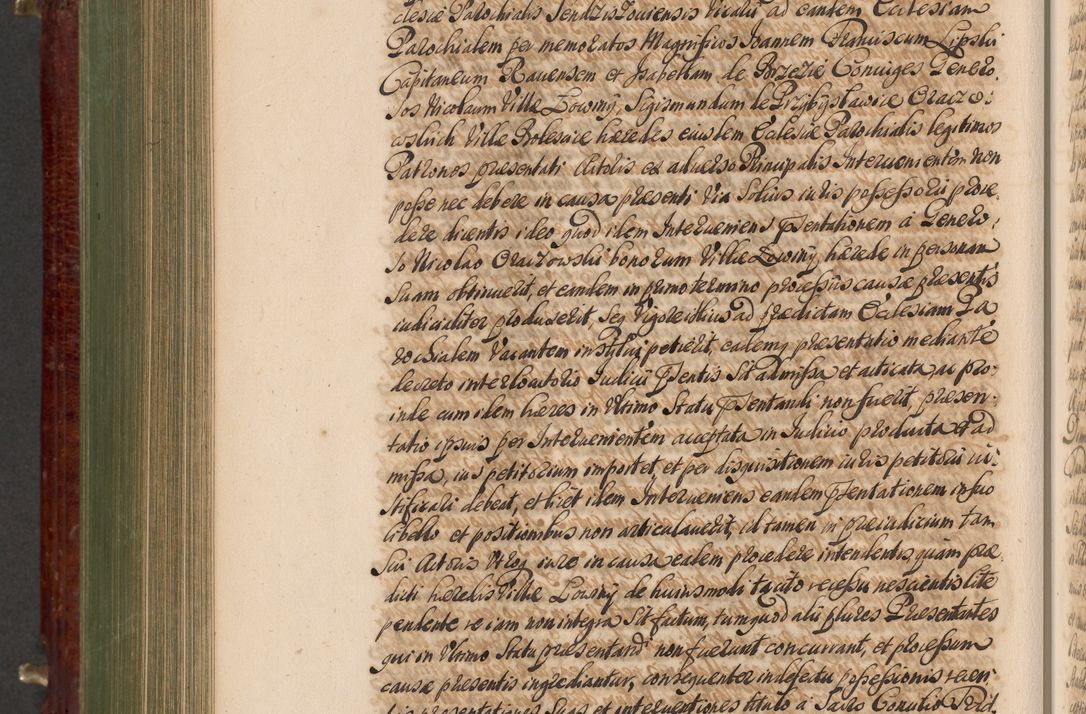 clesiæ Parochialis Sendzis Vicarii ad eandem Ecclesiam
Parochialem per memoratos Magnificos Joannem Franciscum Lipski
Capitaneum Ravensem et Isabellam de Brzezie Coniuges Genero.
sos Nicolaum Villæ Lowiny, Sigismundum de Przybysławice Oraczo:
wskich Villæ Bolesnice hæredes eiusdem Ecclesiæ Parochialis legitimos
Patronos præsentati Actoris ex adverso Principalis Intervenientem non
posse nec debere in causa præsenti via Solius iuris possessorii proce.
dere dicentis ideo quod idem Interveniens Psentationem a Genero:
so Nicolao Oraczowski bonorum Villæ Lowiny hærede in personam
suam obtinuerit, et eandem in primo termino processus causæ præsentis
iudicialiter produxerit, seq vigore illius ad prædictam Ecclesiam Pa
rochialem vacantem institui petierit, eademq præsentatio mediante
decreto interlocutorio Iudicii Psentis sit admissa et acticata, ac pro:
inde cum idem hæres in ultimo Statu Psentandi non fuerit, præsen:
tatio ipsius per Intervenientem acceptata in Iudicio producta et ad
missa, ius petitorium importet, et per disquisitionem iuris petitorii iu:
stificari debeat, et licet idem Interveniens eandem Psentationem in suo
libello et positionibus non articulaverit, id tamen in præiudicium tam
sui Actoris utroq iure in causa eadem procedere intendentis, quam præ
dicti hæredis Villæ Lowiny de huiusmodi tacito recessu nescientis lite
pendente re iam non integra sit factum, tum quod alii plures Præsentantes
qui in ultimo Statu præsentandi non fuerunt concurrant, et processum
causæ præsentis ingrediantur, consequenter in defectu possessionis recen
tis præsentationes suas et interventiones titulo a Sacro Concilio Trid.